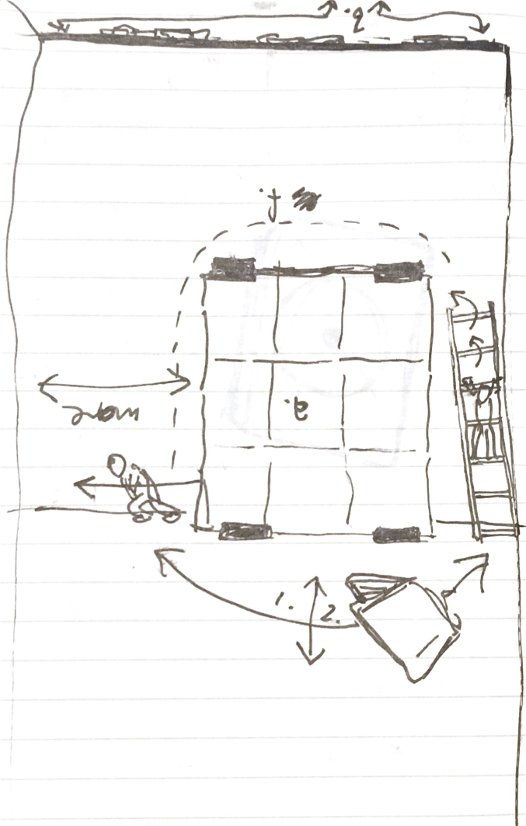 b.
a.
move
1. 2.